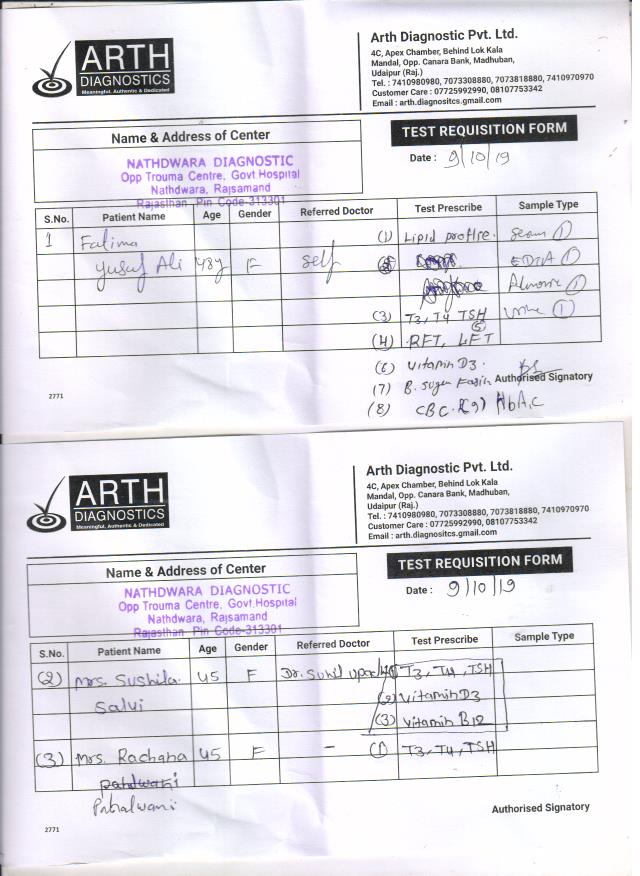 ARTH
DIAGNOSTICS
Meaningful, Authentic & Dedicated
Arth Diagnostic Pvt. Ltd.
4C, Apex Chamber, Behind Lok Kala
Mandal, Opp. Canara Bank, Madhuban,
Udaipur (Raj.)
Tel. : 7410980980, 7073308880, 7073818880, 7410970970
Customer Care : 07725992990, 08107753342
Email : arth.diagnositcs.gmail.com
Name & Address of Center
TEST REQUISITION FORM
NATHDWARA DIAGNOSTIC
Opp Trouma Centre, Govt.Hospital
Nathdwara, Rajsamand
Rajasthan Pin Code-313301
Date : 9/10/19
S.No. Patient Name Age Gender Referred Doctor Test Prescribe Sample Type
1 Fatima (1) Lipid profile. (1)
Yusuf Ali 48y F self EDTA (1)
(1)
(3) T3, T4 TSH Urine (1)
(4) RFT, (5) LFT
(6) Vitamin D3.
(7) B. Sugar Authorised Signatory
(8) CBC. (9) HbA1C
2771
ARTH
DIAGNOSTICS
Meaningful, Authentic & Dedicated
Arth Diagnostic Pvt. Ltd.
4C, Apex Chamber, Behind Lok Kala
Mandal, Opp. Canara Bank, Madhuban,
Udaipur (Raj.)
Tel. : 7410980980, 7073308880, 7073818880, 7410970970
Customer Care : 07725992990, 08107753342
Email : arth.diagnositcs.gmail.com
Name & Address of Center
TEST REQUISITION FORM
NATHDWARA DIAGNOSTIC
Opp Trouma Centre, Govt.Hospital
Nathdwara, Rajsamand
Rajasthan Pin Code-313301
Date : 9/10/19
S.No. Patient Name Age Gender Referred Doctor Test Prescribe Sample Type
(2) Mrs. Sushila 45 F Dr. Sunil T3, T4, TSH
Salvi (2) Vitamin D3
(3) Vitamin B12
(3) Mrs. Rachana 45 F - (1) T3, T4, TSH
Authorised Signatory
2771